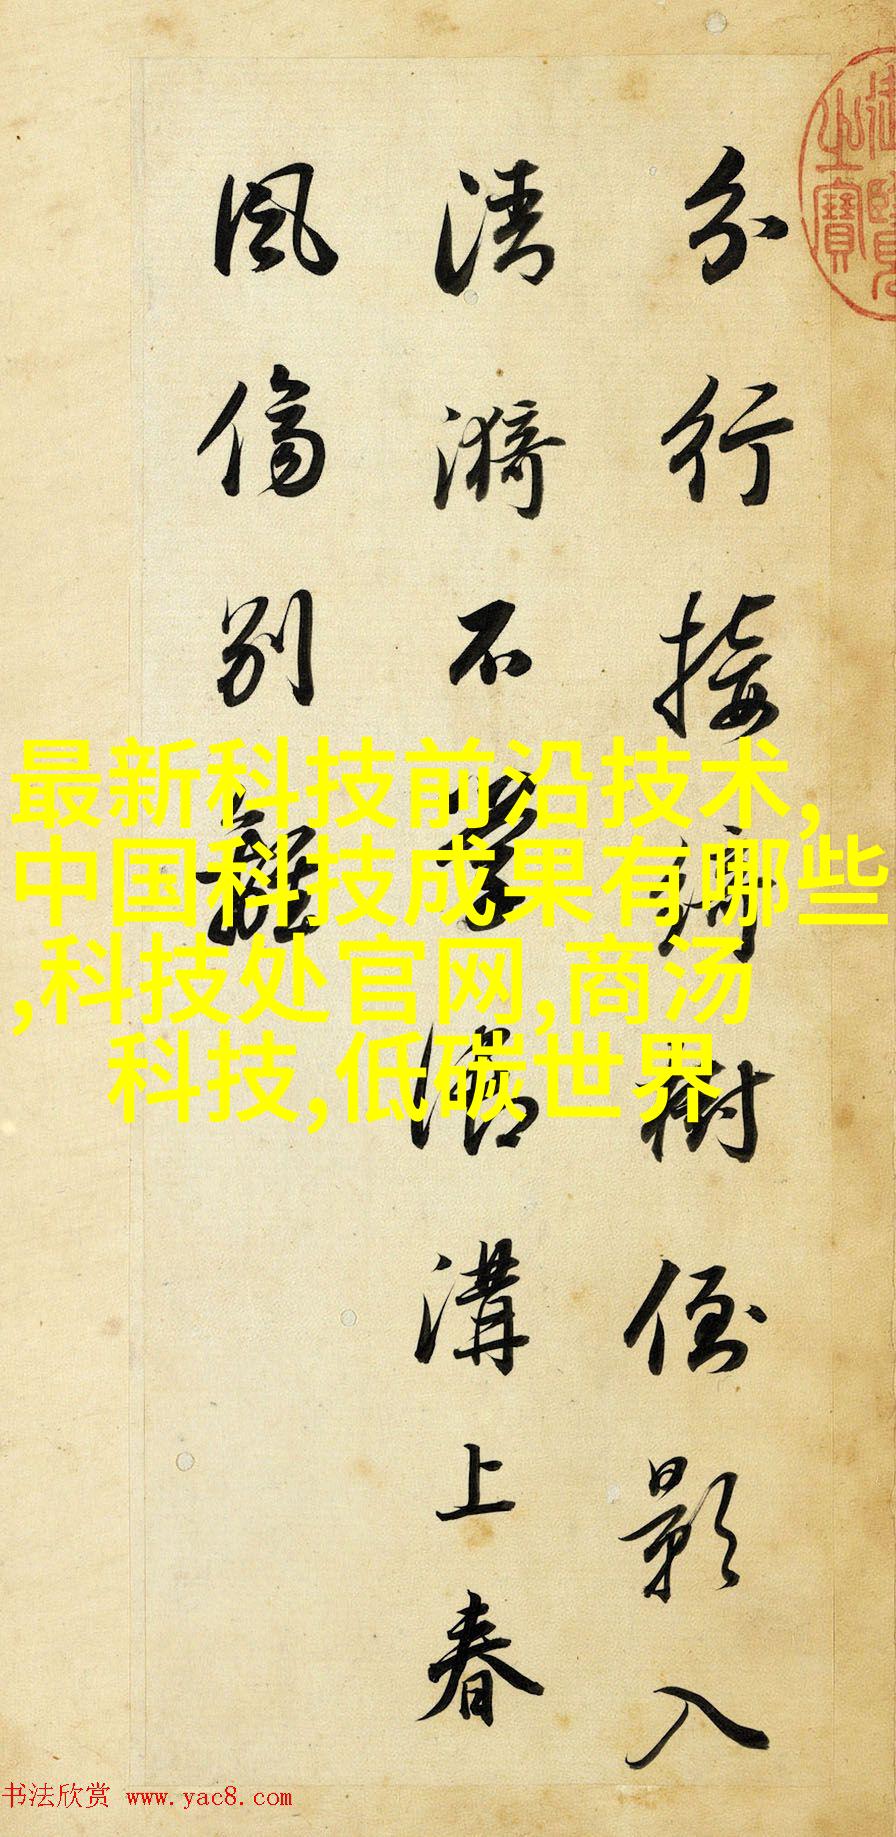 分行接綺樹倒影入
清漪不學御溝上春
風傷別離
最新科技前沿技术,
中国科技成果有哪些
,科技处官网,商汤
科技,低碳世界
之寶
书法欣赏 www.yac8.com